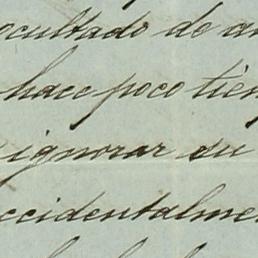 ocultado de
hace poco tiem
ignorar su
ccidentalme